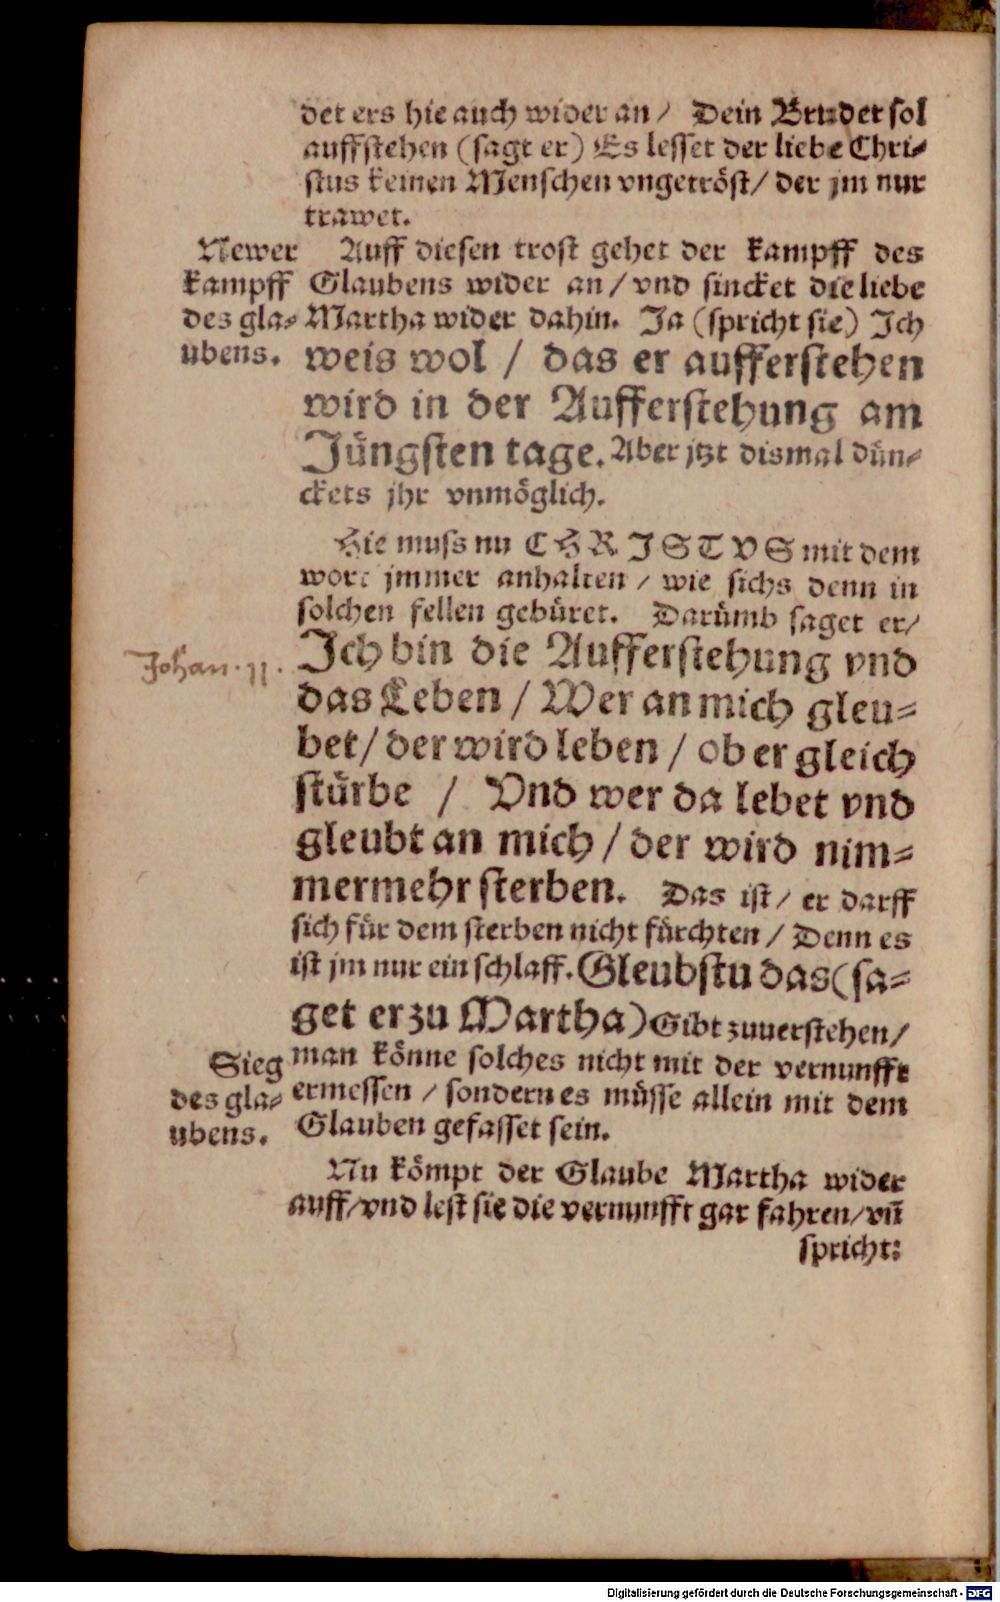 det ers hie auch wider an / Dein Bruder sol
auffstehen (sagt er) Es lesset der liebe Chri⸗
stus keinen Menschen vngetröst / der jm nur
trawet.
Newer
kampff
des gla⸗
ubens.
Auff diesen trost gehet der kampff des
Glaubens wider an / vnd sincket die liebe
Martha wider dahin. Ja (spricht sie) Ich
weis wol / das er aufferstehen
wird in der Aufferstehung am
Jüngsten tage. Aber jtzt dismal dün⸗
ckets jhr vnmöglich.
Hie muss nu CHRISTVS mit dem
wort jmmer anhalten / wie sichs denn in
solchen fellen gebüret. Darümb saget er /
Johan. 11.
Ich bin die Aufferstehung vnd
das Leben / Wer an mich gleu⸗
bet / der wird leben / ob er gleich
stürbe / Vnd wer da lebet vnd
gleubt an mich / der wird nim⸗
mermehr sterben. Das ist / er darff
sich für dem sterben nicht fürchten / Denn es
ist jm nur ein schlaff. Gleubstu das (sa⸗
get er zu Martha) Gibt zuuerstehen /
Sieg
des gla⸗
ubens.
man könne solches nicht mit der vernunfft
ermessen / sondern es müsse allein mit dem
Glauben gefasset sein.
Nu kömpt der Glaube Martha wider
auff / vnd lest sie die vernunfft gar fahren / vn̄
spricht:
Digitalisierung gefördert durch die Deutsche Forschungsgemeinschaft - DFG